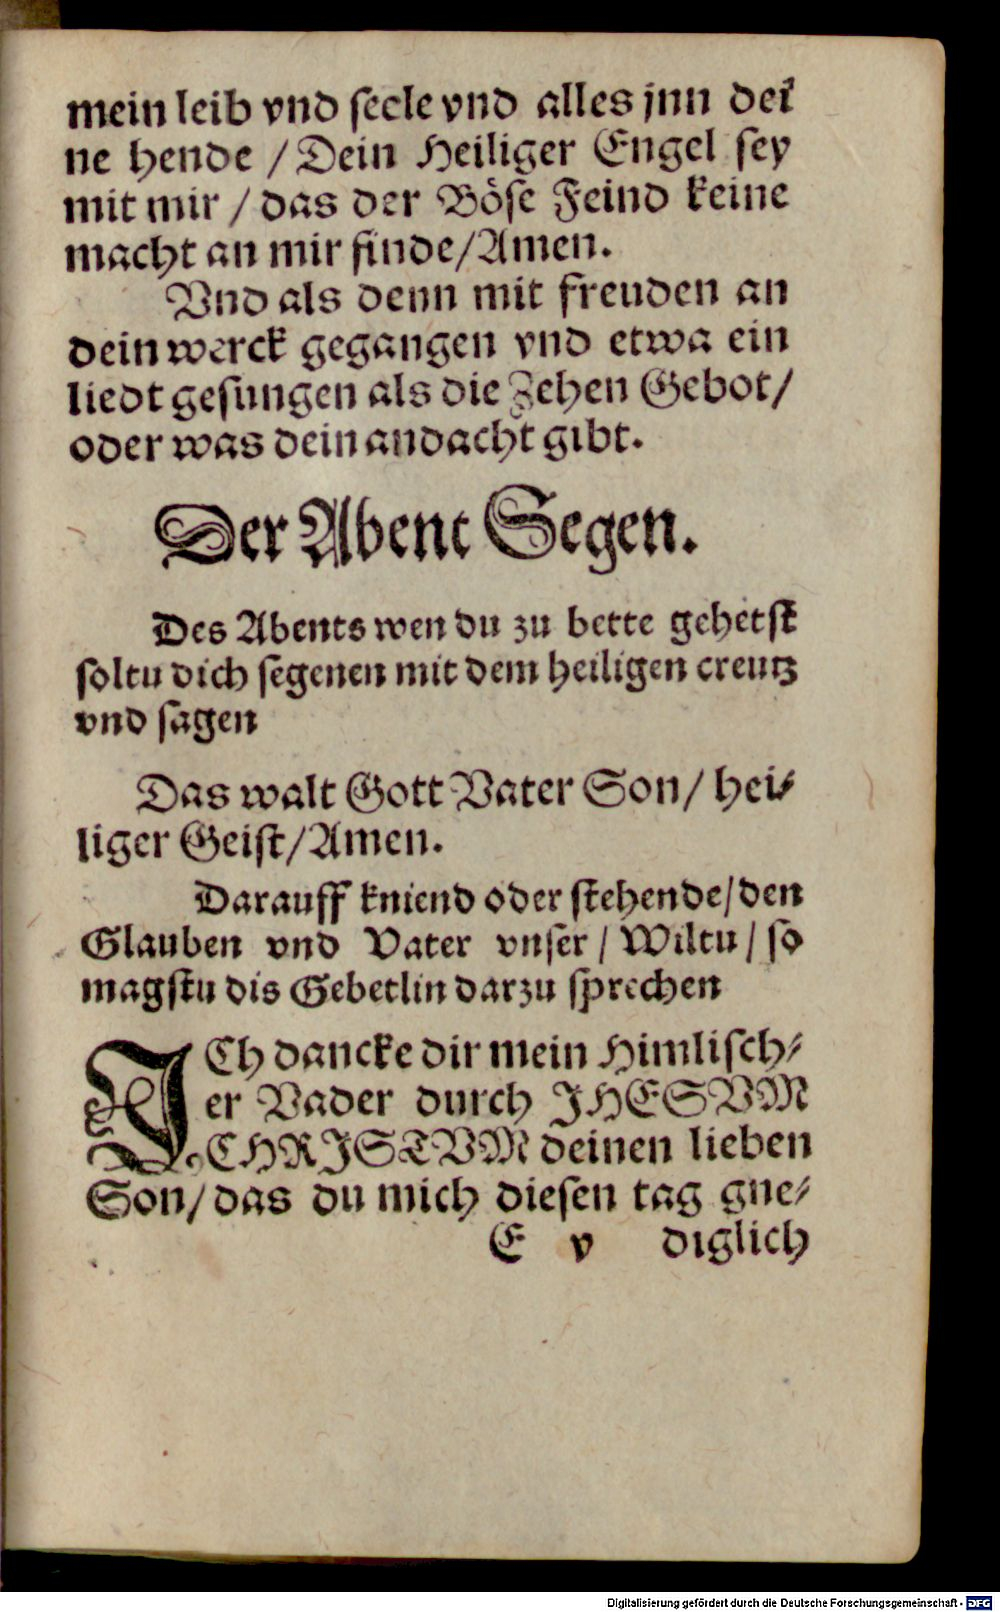 mein leib vnd seele vnd alles jnn dei
ne hende / Dein Heiliger Engel sey
mit mir / das der Böse Feind keine
macht an mir finde/Amen.
Vnd als denn mit freuden an
dein werck gegangen vnd etwa ein
liedt gesungen als die Zehen Gebot/
oder was dein andacht gibt.
Der Abent Segen.
Des Abents wen du zu bette gehetst
soltu dich segenen mit dem heiligen creutz
vnd sagen
Das walt Gott Vater Son/ hei-
liger Geist/Amen.
Darauff kniend oder stehende/den
Glauben vnd Vater vnser / Wiltu / so
magstu dis Gebetlin darzu sprechen
JCh dancke dir mein Himlisch-
er Vader durch JHESVM
CHRJSTVM deinen lieben
Son/ das du mich diesen tag gne-
E v diglich
Digitalisierung gefördert durch die Deutsche Forschungsgemeinschaft - DFG